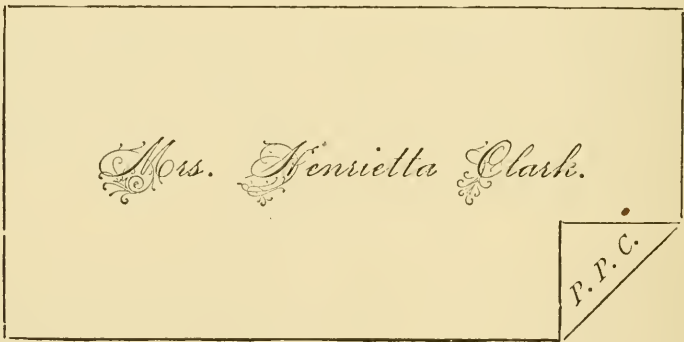 Mrs. Henrietta Clark.
P. P. C.